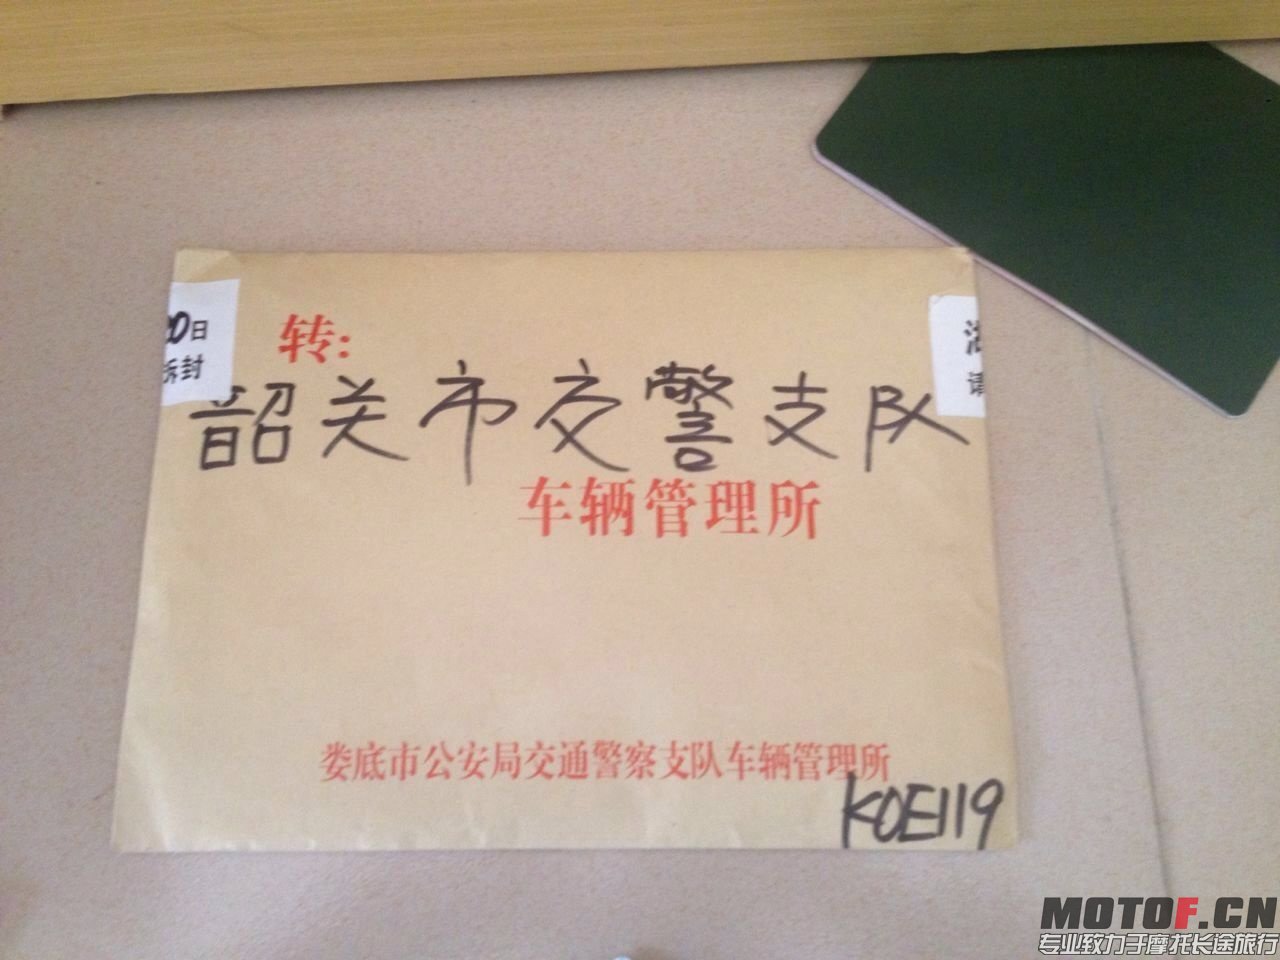 20日
拆封
转:
韶关市交警支队
车辆管理所
娄底市公安局交通警察支队车辆管理所
K0E119
MOTOF.CN
专业致力于摩托长途旅行